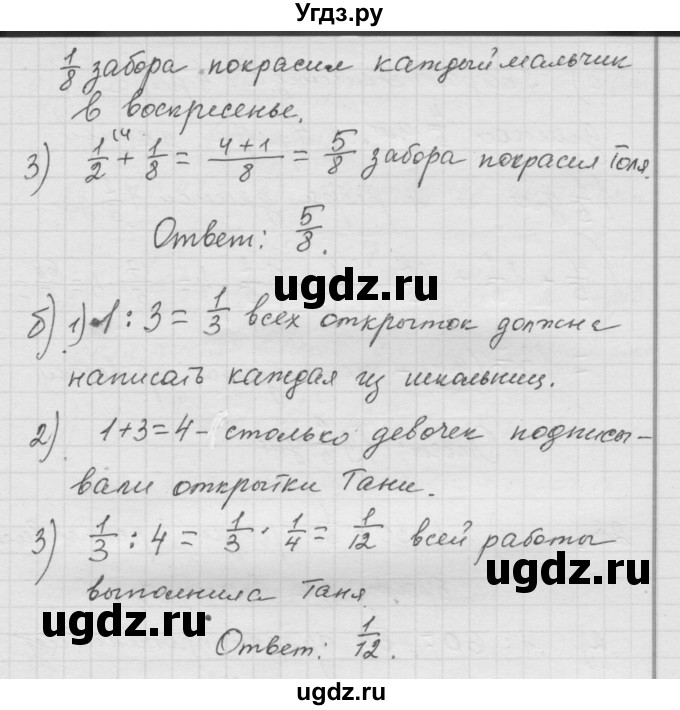 Угдз.ру
1/8 забора покрасил каждый мальчик
в воскресенье.
3) 1/2 (4 + 1/8 = (4+1)/8 = 5/8 забора покрасил Толя.
Ответ: 5/8.
ugdz.ru
б) 1) 1 : 3 = 1/3 всех открыток должна
написать каждая из школьниц.
ugdz.ru
2) 1+3=4 - столько девочек подписы-
вали открытки Тани.
ugdz.ru
3) 1/3 : 4 = 1/3 · 1/4 = 1/12 всей работы
выполнила Таня
ugdz.ru
ugdz.ru
Ответ: 1/12.
ugdz.ru
ugdz.ru